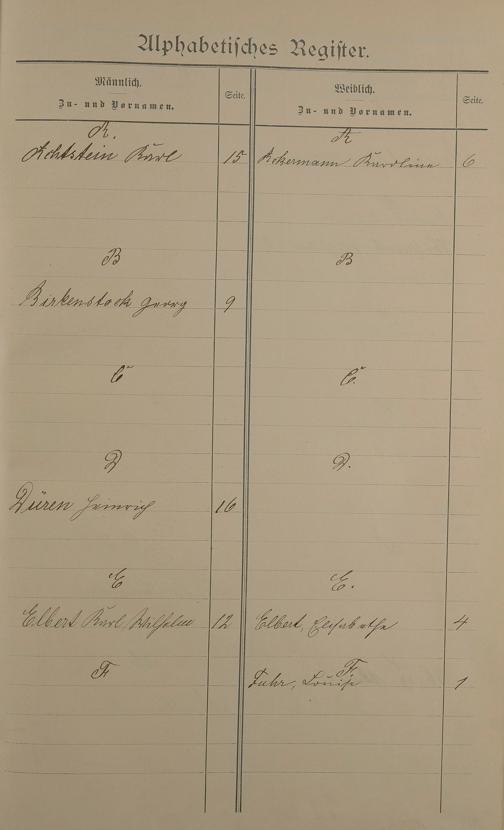 Alphabetisches Register.
Männlich.
Zu- und Vornamen.
Seite.
Weiblich.
Zu- und Vornamen.
Seite.
A.
A
Achtstein Karl 15
Ackermann Karoline 6
B
B
Birkenstock Georg 9
C
C.
D
D.
Düren Heinrich 16
E
E.
Elbert Karl Wilhelm 12
Elbert, Elisabetha 4
F
F.
Fuhr, Louise 1